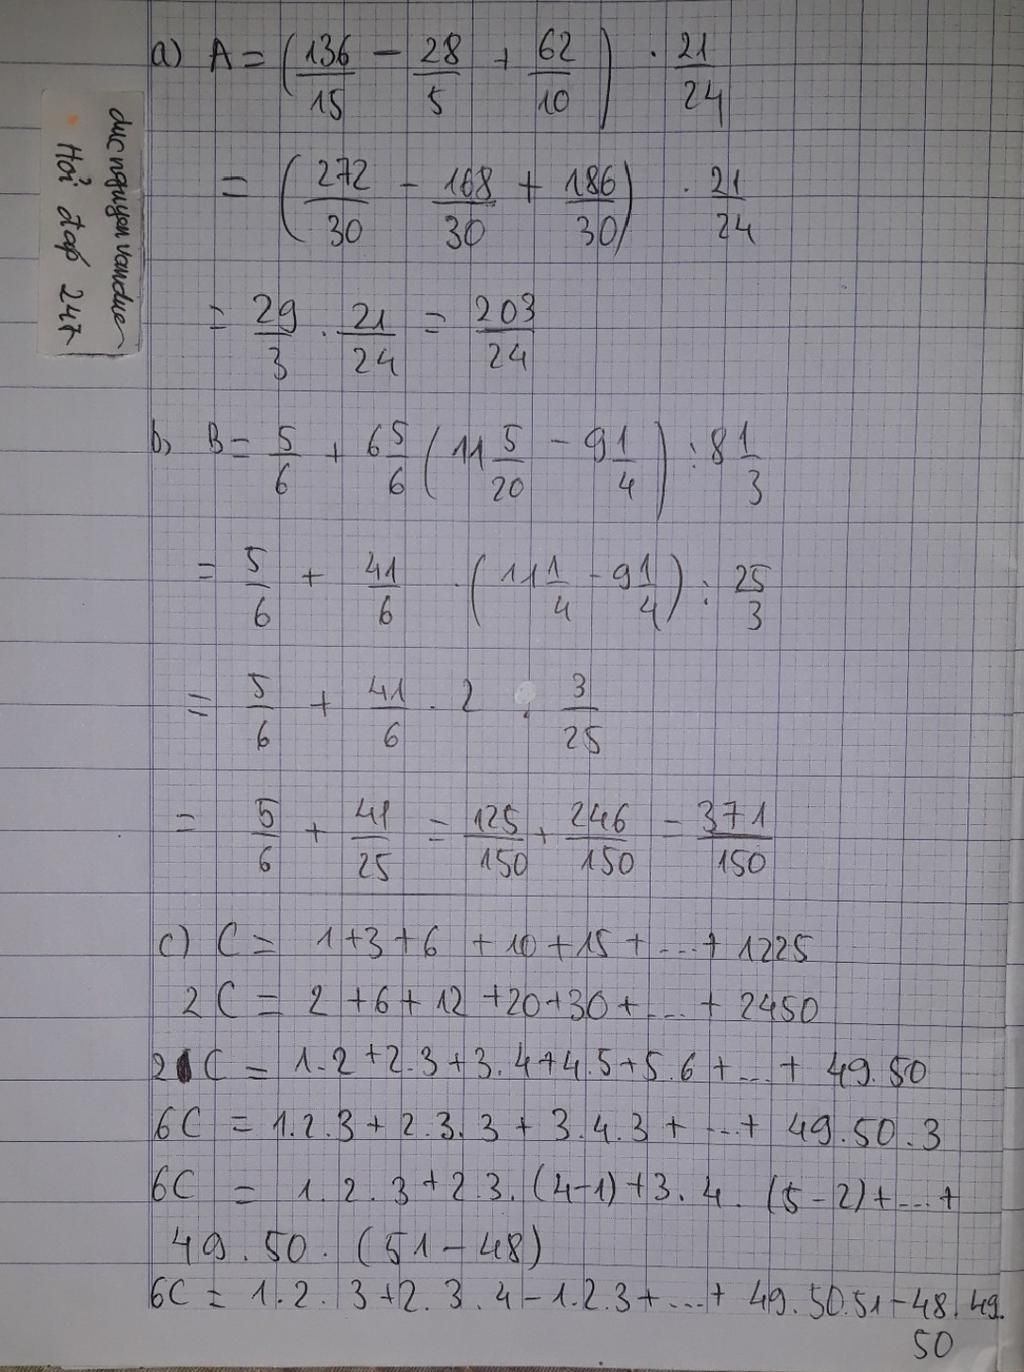 a) A = (136/15 - 28/5 + 62/10) . 21/24
= (272/30 - 168/30 + 186/30) . 21/24
= 29/3 . 21/24 = 203/24
b, B = 5/6 + 6 5/6 (11 5/20 - 9 1/4) : 8 1/3
= 5/6 + 41/6 . (11 1/4 - 9 1/4) : 25/3
= 5/6 + 41/6 . 2 . 3/25
= 5/6 + 41/25 = 125/150 + 246/150 = 371/150
c) C = 1+3+6 +10+15+...+ 1225
2C = 2+6+12+20+30+...+ 2450
2C = 1.2+2.3+3.4+4.5+5.6+...+ 49.50
6C = 1.2.3+2.3.3+3.4.3+...+ 49.50.3
6C = 1.2.3+2.3.(4-1)+3.4.(5-2)+...+
49.50.(51-48)
6C = 1.2.3+2.3.4-1.2.3+...+ 49.50.51-48.49.
50
ducnguyenvanduc
Hỏi đáp 247